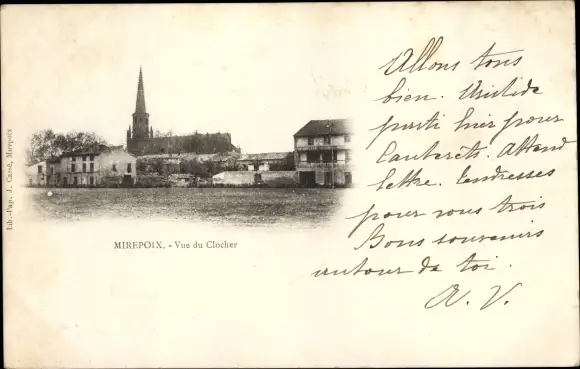 Lib.-Pap. J. Cazsé, Mirepoix
MIREPOIX. - Vue du Clocher
Allons tous
bien.
parti hier pour
Cauterets. Attend
lettre. Tendresses
pour vous trois
Bons souvenirs
autour de toi.
A. V.